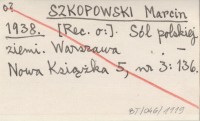 02
SZKOPOWSKI Marcin
1938. [Rec. o:]. Sól polskiej
ziemi. Warszawa .. —
Nowa Książka 5, nr 3: 136.
BJ/046/1119